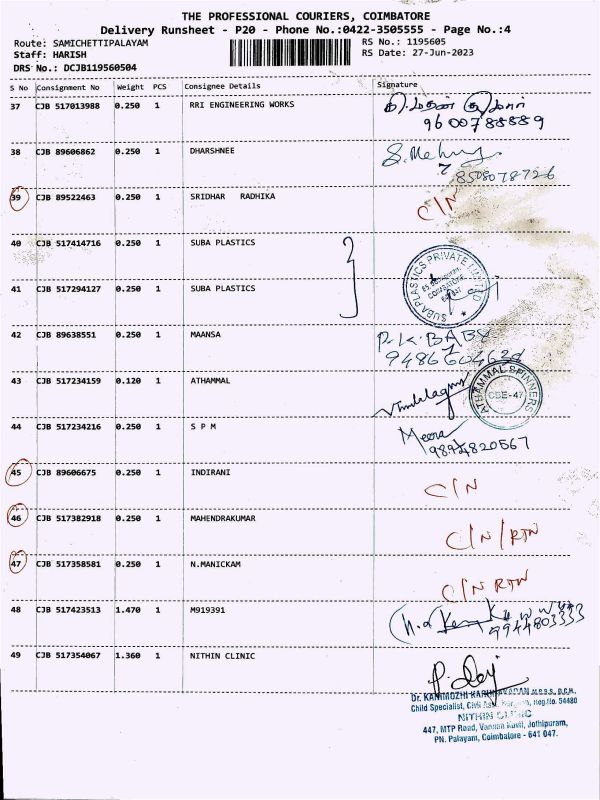 THE PROFESSIONAL COURIERS, COIMBATORE
Delivery Runsheet - P20 - Phone No.:0422-3505555 - Page No.:4
Route: SAMICHETTIPALAYAM RS No.: 1195605
Staff: HARISH RS Date: 27-Jun-2023
DRS No.: DCJB119560504
S No Consignment No Weight PCS Consignee Details Signature
37 CJB 517013988 0.250 1 RRI ENGINEERING WORKS
9600788889
38 CJB 89606862 0.250 1 DHARSHNEE
8508078726
39 CJB 89522463 0.250 1 SRIDHAR RADHIKA C/N
40 CJB 517414716 0.250 1 SUBA PLASTICS
SUBA PLASTICS PRIVATE LIMITED
41 CJB 517294127 0.250 1 SUBA PLASTICS
42 CJB 89638551 0.250 1 MAANSA P.K.BABY
43 CJB 517234159 0.120 1 ATHAMMAL
ATHAMMAL SPINNERS
CBE-47
44 CJB 517234216 0.250 1 S P M Meera
9894820567
45 CJB 89606675 0.250 1 INDIRANI C/N
46 CJB 517382918 0.250 1 MAHENDRAKUMAR C/N/RTN
47 CJB 517358581 0.250 1 N.MANICKAM C/N RTN
48 CJB 517423513 1.470 1 M919391
9944803333
49 CJB 517354067 1.360 1 NITHIN CLINIC
Dr. KANIMOZHI M.B.B.S., D.C.H.
Child Specialist, Civil Reg.No. 54480
NITHIN CLINIC
447, MTP Road, Jothipuram,
PN. Palayam, Coimbatore - 641 047.